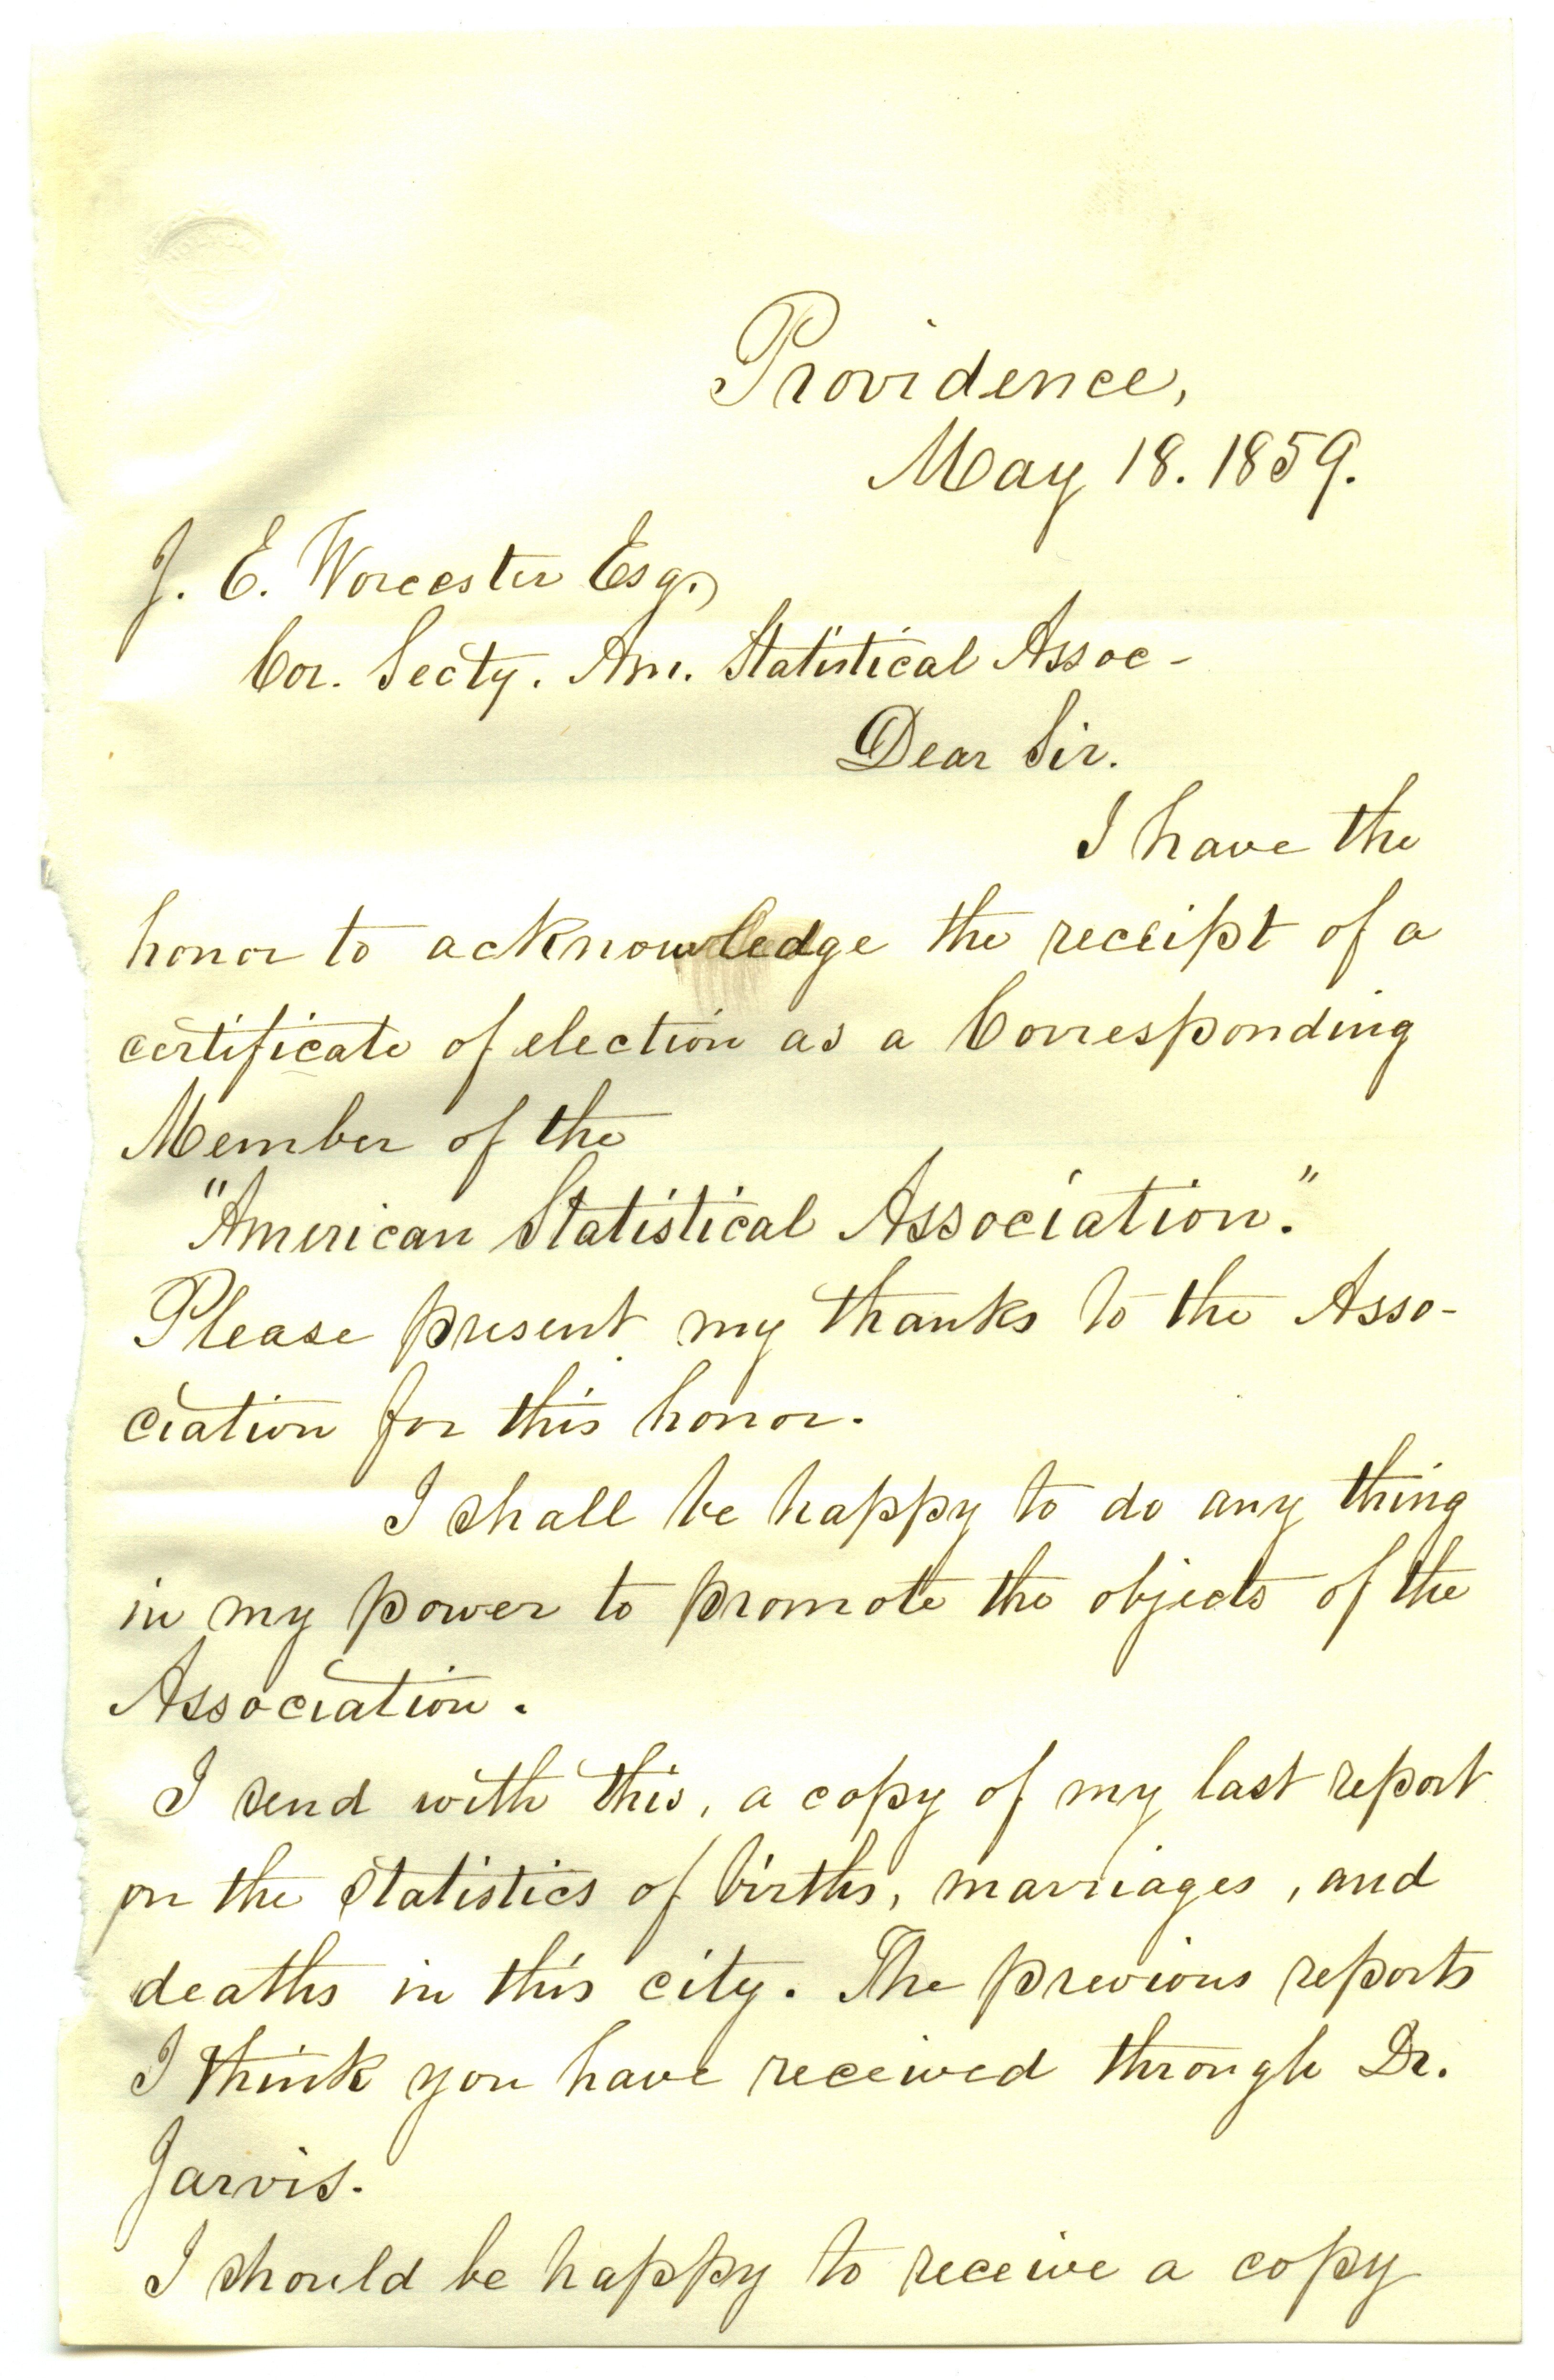 Providence,
May 18. 1859.
J. E. Worcester Esq.,
Cor. Secty. Am. Statistical Assoc-
Dear Sir.
I have the
honor to acknowledge the receipt of a
certificate of election as a Corresponding
Member of the
"American Statistical Association."
Please present my thanks to the Asso-
ciation for this honor.
I shall be happy to do any thing
in my power to promote the objects of the
Association.
I send with this, a copy of my last report
on the statistics of births, marriages, and
deaths in this city. The previous reports
I think you have received through Dr.
Jarvis.
I should be happy to receive a copy